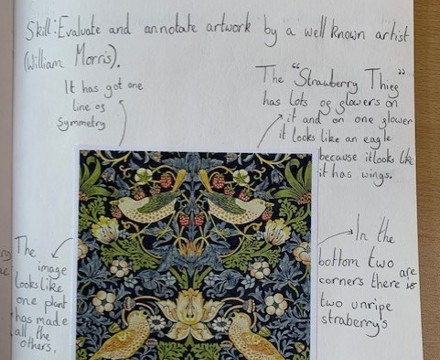 Skill: Evaluate and annotate artwork by a well known artist
(William Morris).
It has got one
line of
Symmetry
The "Strawberry Thief"
has lots of flowers on
it and on one flower
it looks like an eagle
because it looks like
it has wings.
The
image
looks like
one plant
has made
all the
others.
In the
bottom two
corners there are
two unripe
straberrys